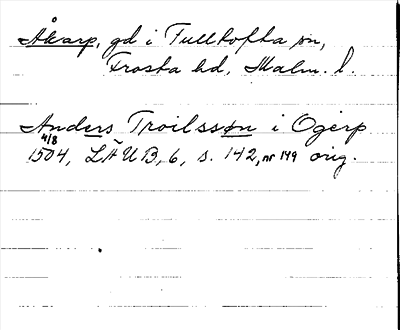 Åkarp, gd i Fulltofta sn,
Frosta hd, Malm. l.
Anders Troilssøn i Ogerp
4/8
1504, LÄUB, 6, s. 142, nr 149 orig.